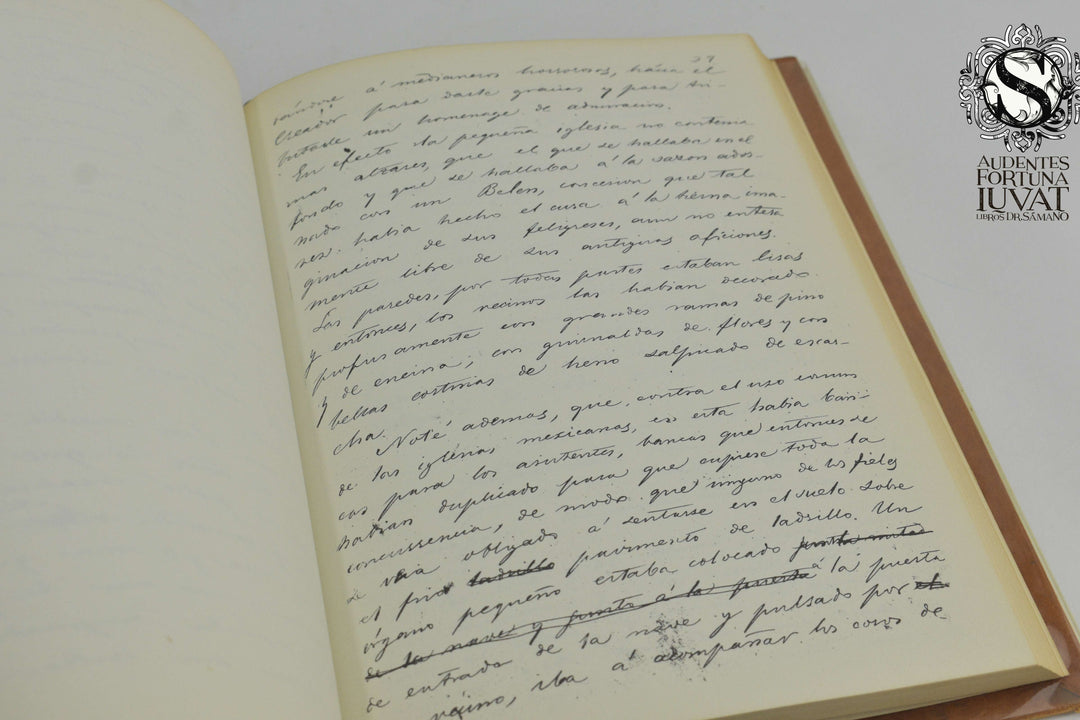 37
á medianeros horrorosos, hácia el
Creador para darle gracias y para tri-
butarle un homenage de admiracion.
En efecto la pequeña iglesia no contenia
mas altares, que el que se hallaba en el
fondo y que se hallaba á la sazon ador-
nado con un Belen, concesion que tal
vez habia hecho el cura á la tierna ima-
ginacion de sus feligreses, aun no entera
mente libre de sus antiguas aficiones.
Las paredes, por todas partes estaban lisas
y entonces, los vecinos las habian decorado
profusamente con grandes ramas de pino
y de encina; con guirnaldas de flores y con
bellas cortinas de heno salpicado de escar-
cha. Noté ademas, que contra el uso comun
de las iglesias mexicanas, en esta habia ban-
cas para los asistentes, bancas que entonces se
habian duplicado para que cupiese toda la
concurrencia, de modo que ninguno de los fieles
se veia obligado á sentarse en el suelo sobre
el frio ladrillo pavimento de ladrillo. Un
órgano pequeño estaba colocado junto mitad
de la nave y junto á la puerta á la puerta
de entrada de la nave y pulsado por el
vecino, iba á acompañar los coros de
S
AUDENTES
FORTUNA
IUVAT
LIBROS DR. SÁMANO